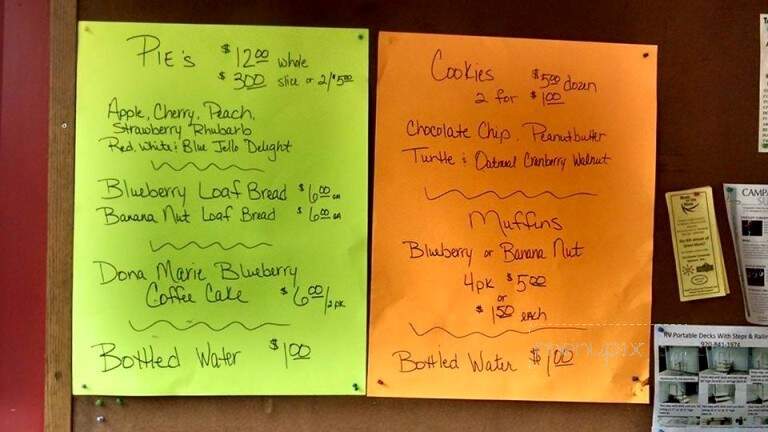 PIE's $12.00 whole
$3.00 slice or 2/$5.00
Apple, Cherry, Peach,
Strawberry Rhubarb
Red, White & Blue Jello Delight
Blueberry Loaf Bread $6.00 ea
Banana Nut Loaf Bread $6.00 ea
Dona Marie Blueberry
Coffee Cake $6.00/2pk
Bottled Water $1.00
Cookies $5.00 dozen
2 for $1.00
Chocolate Chip, Peanutbutter
Turtle & Oatmeal Cranberry Walnut
Muffins
Blueberry or Banana Nut
4pk $5.00
or
$1.50 each
Bottled Water $1.00
RV Portable Decks With Steps & Railin
920-841-1974
CAMPA
menupix